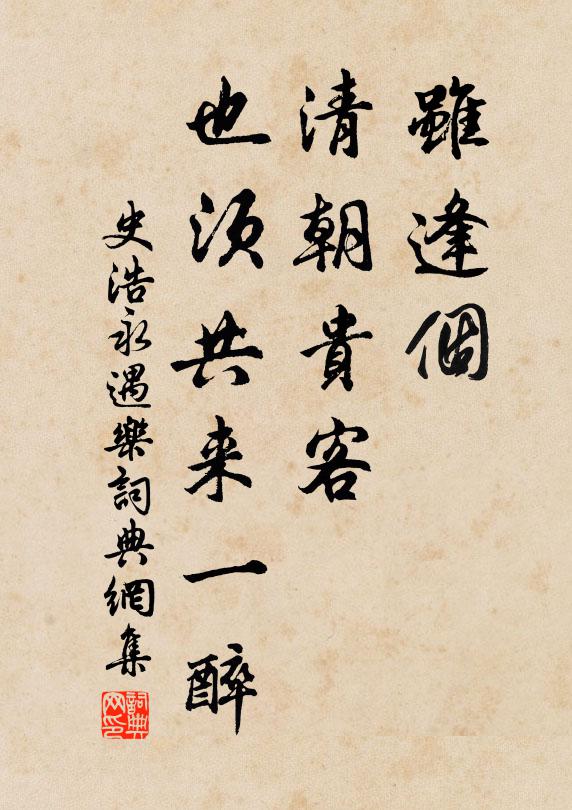 雖逢個
清朝貴客
也須共来一醉
史浩永遇樂詞典網集
詞典网印